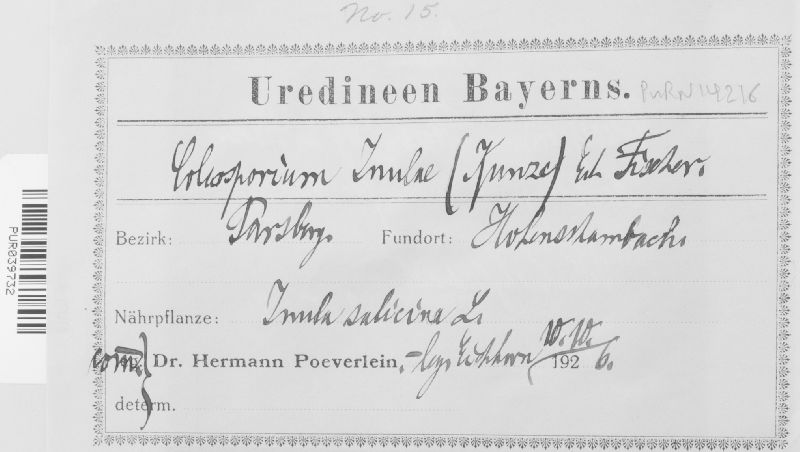 No. 15.
Uredineen Bayerns. PURN14216
Coleosporium Inulae (Kunze) Ed. Fischer.
Bezirk: Parsberg. Fundort: Hohenschambach.
Nährpflanze: Inula salicina L.
com. Dr. Hermann Poeverlein, leg. 192 6.
determ.
PUR039732